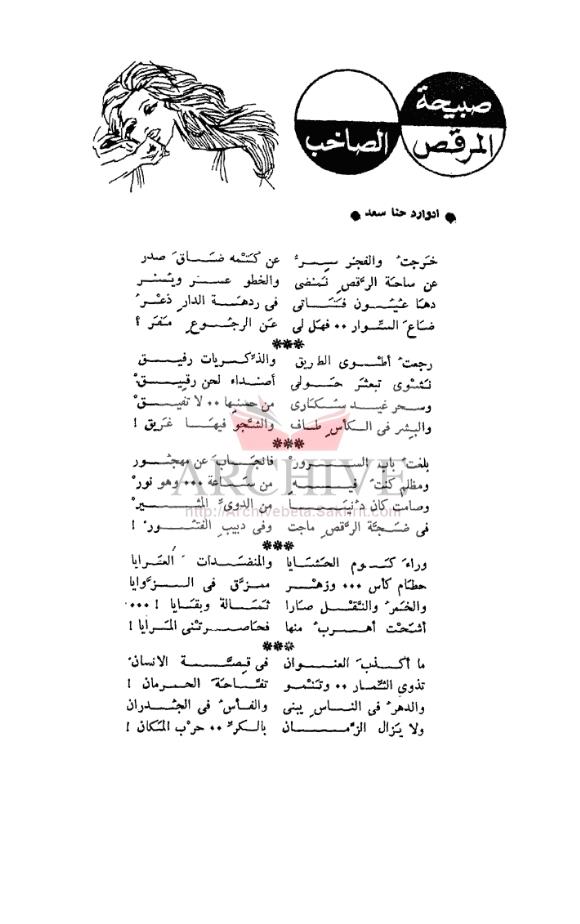 صبيحة
المرقص
الصاخب
ادوارد حنا سعد
خرجتُ والفجر سِرُّ عن كتمه ضاق صدر
عن ساحة الرقصِ تمضى والخطو عسر ويسر
دهاعيون فتاتى فى ردهة الدارِ ذعرُ
ضاعَ السوار .. فهل لى عن الرجوعِ مفر ؟
***
رجعتُ أطوى الطريق والذكريات رفيق
نشوى تبعثر حولى أصداء لحن رقيقْ
وسحر غيد سكارى من حسنها .. لا تفيقْ
والبشر فى الكأس طاف والشجو فيها غريق !
***
بلغت باب السرورْ فانجابَ عن مهجور
ومظلم كنت فيه من ساعة ... وهو نورْ
وصامت كان دنيا من الدوىِّ المثيرْ
فى ضجة الرقصِ ماجت وفى دبيب الفتورْ !
ARCHIVE
http://Archivebeta.Sakhrit.com
***
وراءَ كوم الحشايا والمنضدات العرايا
حطام كأس ... وزهر ممزق فى الزوايا
والخمرُ والنقل صارا ثمالة وبقايا ! ...
أشحت أهربُ منها فحاصرتنى المرايا !
***
ما أكذبَ العنوان فى قصة الانسان
تذوى الثمار .. وتنمو تفاحة الحرمان !
والدهر فى الناس يبنى والفأس فى الجدران
ولا يزال الزمان بالكرِّ .. حرب المكان !